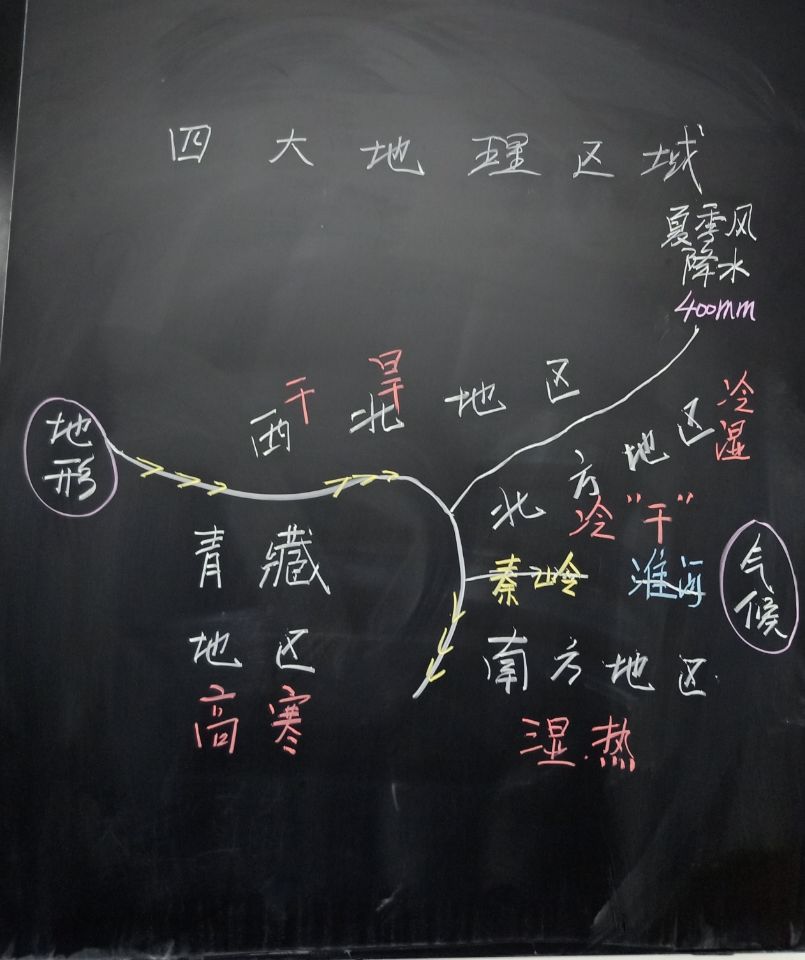 四大地理区域
夏季风
降水
400mm
干旱
西北地区
地形
北方地区
冷湿
冷"干"
青藏
地区
高寒
秦岭 淮河
气候
南方地区
湿热